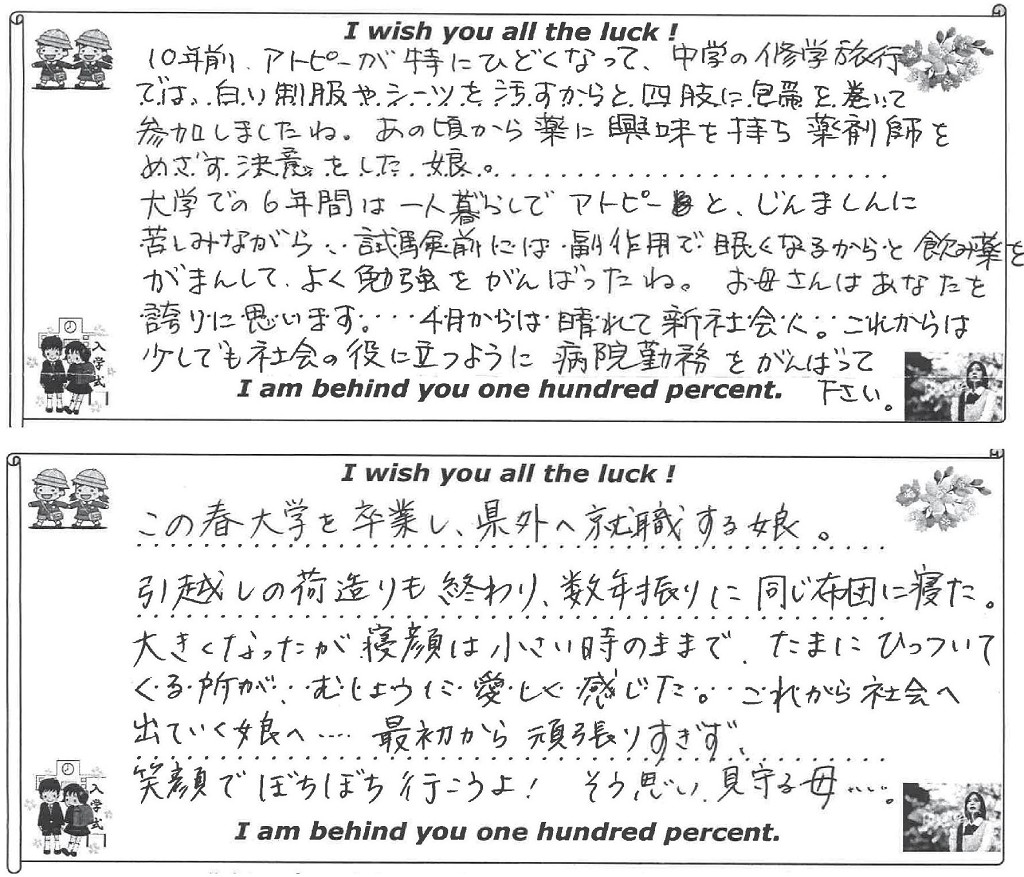 I wish you all the luck !
10年前、アトピーが特にひどくなって、中学の修学旅行
では、白い制服やシーツを汚すからと四肢に包帯を巻いて
参加しましたね。あの頃から薬に興味を持ち薬剤師を
めざす決意をした娘。
大学での6年間は一人暮らしでアトピーと、じんましんに
苦しみながら、試験前には副作用で眠くなるからと飲み薬を
がまんして、よく勉強をがんばったね。お母さんはあなたを
誇りに思います。4月からは晴れて新社会人。これからは
少しでも社会の役に立つように病院勤務をがんばって
下さい。
I am behind you one hundred percent.
入学式
I wish you all the luck !
この春大学を卒業し、県外へ就職する娘。
引越しの荷造りも終わり、数年振りに同じ布団に寝た。
大きくなったが寝顔は小さい時のままで、たまにひっついて
くる所が、むしょうに愛しく感じた。これから社会へ
出ていく娘へ…. 最初から頑張りすぎず、
笑顔でぼちぼち行こうよ! そう思い、見守る母…..。
I am behind you one hundred percent.
入学式